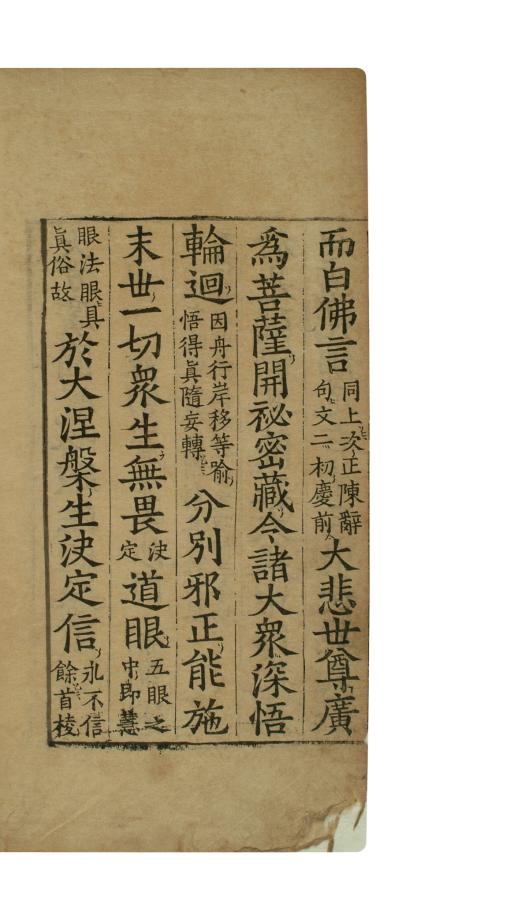 而白佛言同上次正陳辭句文二初慶前大悲世尊廣
爲菩薩開祕密藏令諸大衆深悟
輪迴因舟行岸移等喻悟得眞隨妄轉分別邪正能施
末世一切衆生無畏決定道眼五眼之中即慧
眼法眼具眞俗故於大涅槃生決定信永不信餘首棱